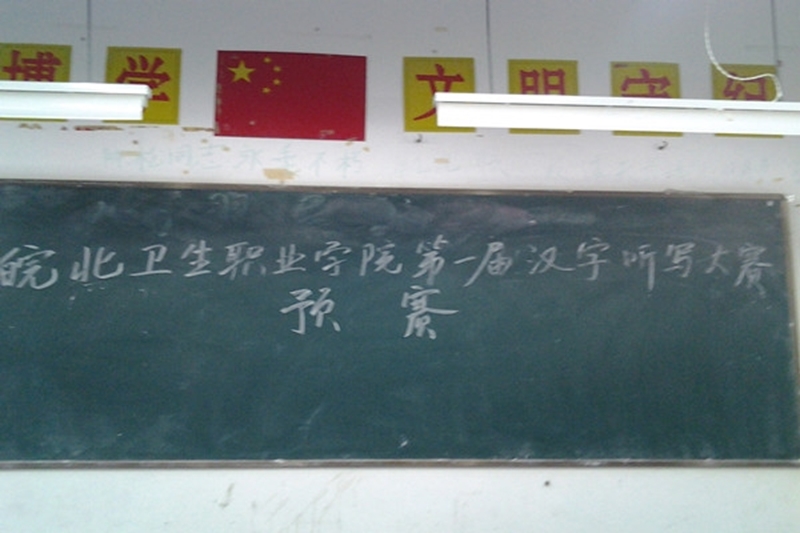 博学 文明守纪
皖北卫生职业学院第一届汉字听写大赛
预赛